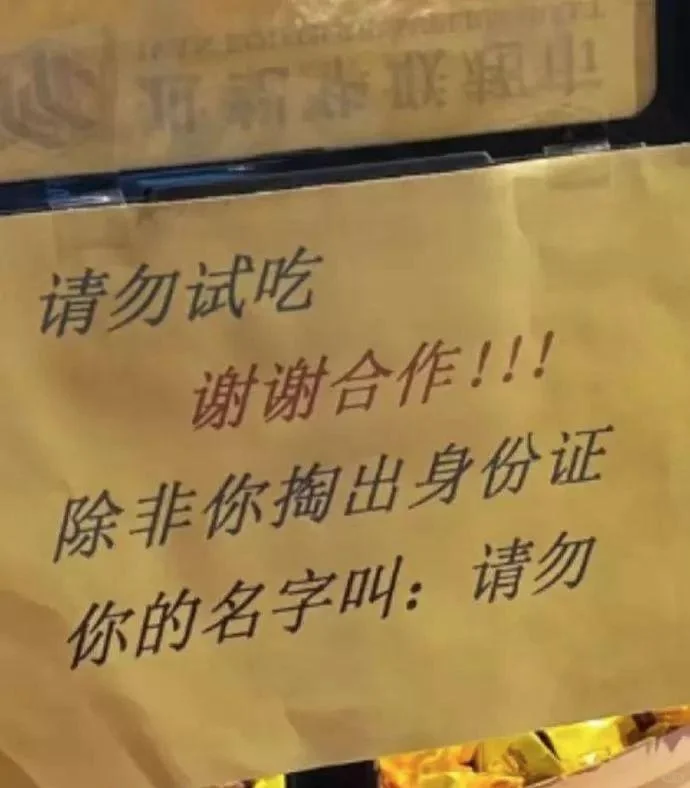 请勿试吃
谢谢合作!!!
除非你掏出身份证
你的名字叫：请勿